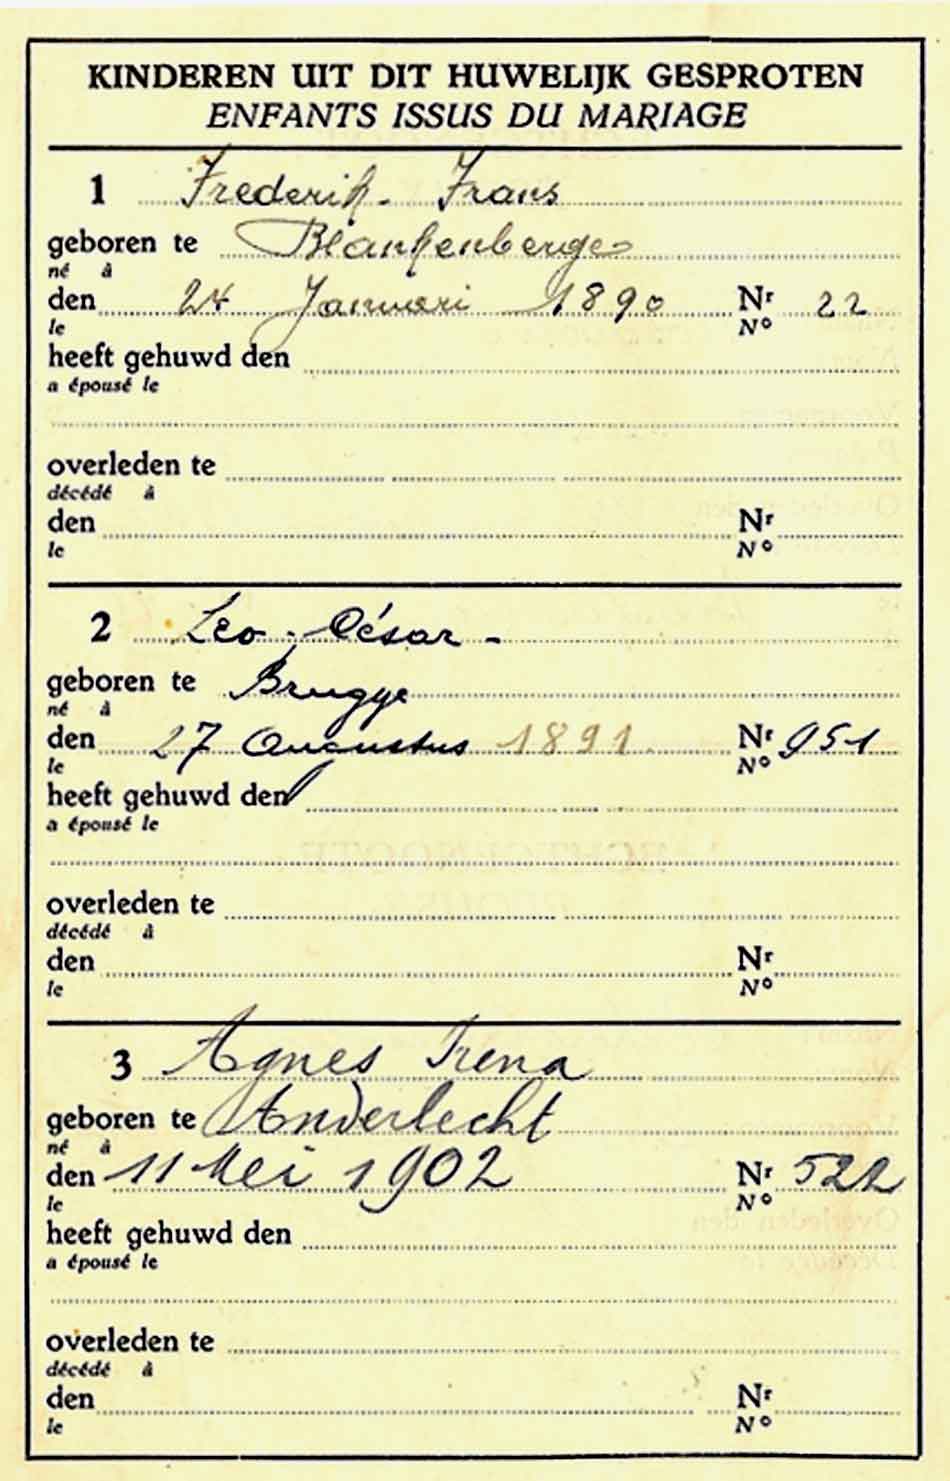 KINDEREN UIT DIT HUWELIJK GESPROTEN
ENFANTS ISSUS DU MARIAGE
1 Frederik - Frans
geboren te Blankenberge
né à
den 24 Januari 1890 Nr 22
le No
heeft gehuwd den
a épousé le
overleden te
décédé à
den Nr
le No
2 Leo - César -
geboren te Brugge
né à
den 27 Augustus 1891 Nr 951
le No
heeft gehuwd den
a épousé le
overleden te
décédé à
den Nr
le No
3 Agnes Irena
geboren te Anderlecht
né à
den 11 Mei 1902 Nr 522
le No
heeft gehuwd den
a épousé le
overleden te
décédé à
den Nr
le No